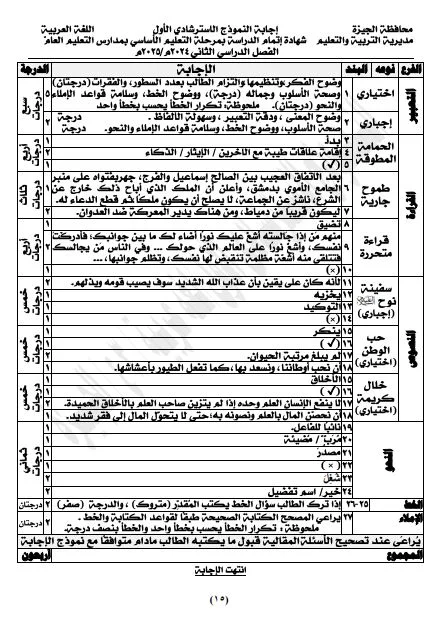 محافظة الجيزة
إجابة النموذج الاسترشادي الأول
اللغة العربية
مديرية التربية والتعليم
شهادة إتمام الدراسة بمرحلة التعليم الأساسي بمدارس التعليم العام
الفصل الدراسي الثاني ٢٠٢٤م/٢٠٢٥م
الفرع نوعه البند الإجابة الدرجة
التعبير
اختياري ١ وضوح الفكر وتنظيمها والتزام الطالب بعدد السطور، والفقرات (درجتان)
وصحة الأسلوب وجماله (درجة)، ووضوح الخط، وسلامة قواعد الإملاء
والنحو (درجتان). ملحوظة: تكرار الخطأ يحسب بخطأ واحد
سبع درجات
إجباري ٢ وضوح المعنى، ودقة التعبير، وسهولة الألفاظ. درجة ٢
صحة الأسلوب، ووضوح الخط، وسلامة قواعد الإملاء والنحو. درجة
القراءة
الحمامة المطوقة
٣ يبدد ١
٤ إقامة علاقات طيبة مع الآخرين / الإيثار / الذكاء ٢
٥ (✓) ١
أربع درجات
طموح جارية
٦ بعد الاتفاق العجيب بين الصالح إسماعيل والفرج، جهر بفتواه على منبر
الجامع الأموي بدمشق، وأعلن أن الملك الذي أباح ذلك خارج عن
الشرع، ناشز عن الجماعة، لا يصلح أن يكون ملكًا ثم قطع الدعاء له.
٧ ليكون قريبًا من دمياط، ومن هناك يدير المعركة ضد العدوان. ٢
ثلاث درجات
قراءة متحررة
٨ تضيق ١
٩ منهم مَن إذا جالسته أشع عليك نورًا أضاء لك ما بين جوانبك، فأدركت
نفسك، وأشع نورًا على العالم الذي حولك ... وفي الناس مَن يجالسك
فتتلقى منه أشعة مظلمة تنقبض لها نفسك، وتظلم جوانبها،..
١٠ (×) ١
أربع درجات
النصوص
سفينة نوح
١١ لأنه كان على يقين بأن عذاب الله الشديد سوف يصيب قومه ويذلهم. ٢
١٢ يخزيه ١
١٣ التوكيد ١
١٤ (×) ١
خمس درجات
حب الوطن (اختياري)
١٥ ينكر ١
١٦ (✓) ١
١٧ لم يبلغ مرتبة الحيوان. ٢
١٨ أن نحب أوطاننا، ونسعد بها، كما تفعل الطيور بأعشاشها. ١
خمس درجات
خلال كريمة (اختياري)
١٥ الأخلاق ١
١٦ (✓) ١
١٧ لا ينفع الإنسان العلم وحده إذا لم يتزين صاحب العلم بالأخلاق الحميدة. ٢
١٨ أن نحصن المال بالعلم ونصونه به؛ حتى لا يتحول المال إلى فقر شديد. ١
خمس درجات
النحو
١٩ نائبًا للفاعل. ١
٢٠ ١
٢١ مصدر ١
٢٢ (×) ١
٢٣ ١
٢٤ خبر/ اسم تفضيل ٢
ثماني درجات
الخط ٢٥-٢٦ إذا ترك الطالب سؤال الخط يكتب المقدر (متروك) ، والدرجة (صفر) ٢ درجتان
الإملاء ٢٧ يراعي المصحح الكتابة الصحيحة طبقًا لقواعد الكتابة والخط. ٢ درجتان
ملحوظة : تكرار الخطأ يحسب بخطأ واحد والخطأ بنصف درجة.
يُراعى عند تصحيح الأسئلة المقالية قبول ما يكتبه الطالب مادام متوافقًا مع نموذج الإجابة
المجموع أربعون
انتهت الإجابة
(١٥)